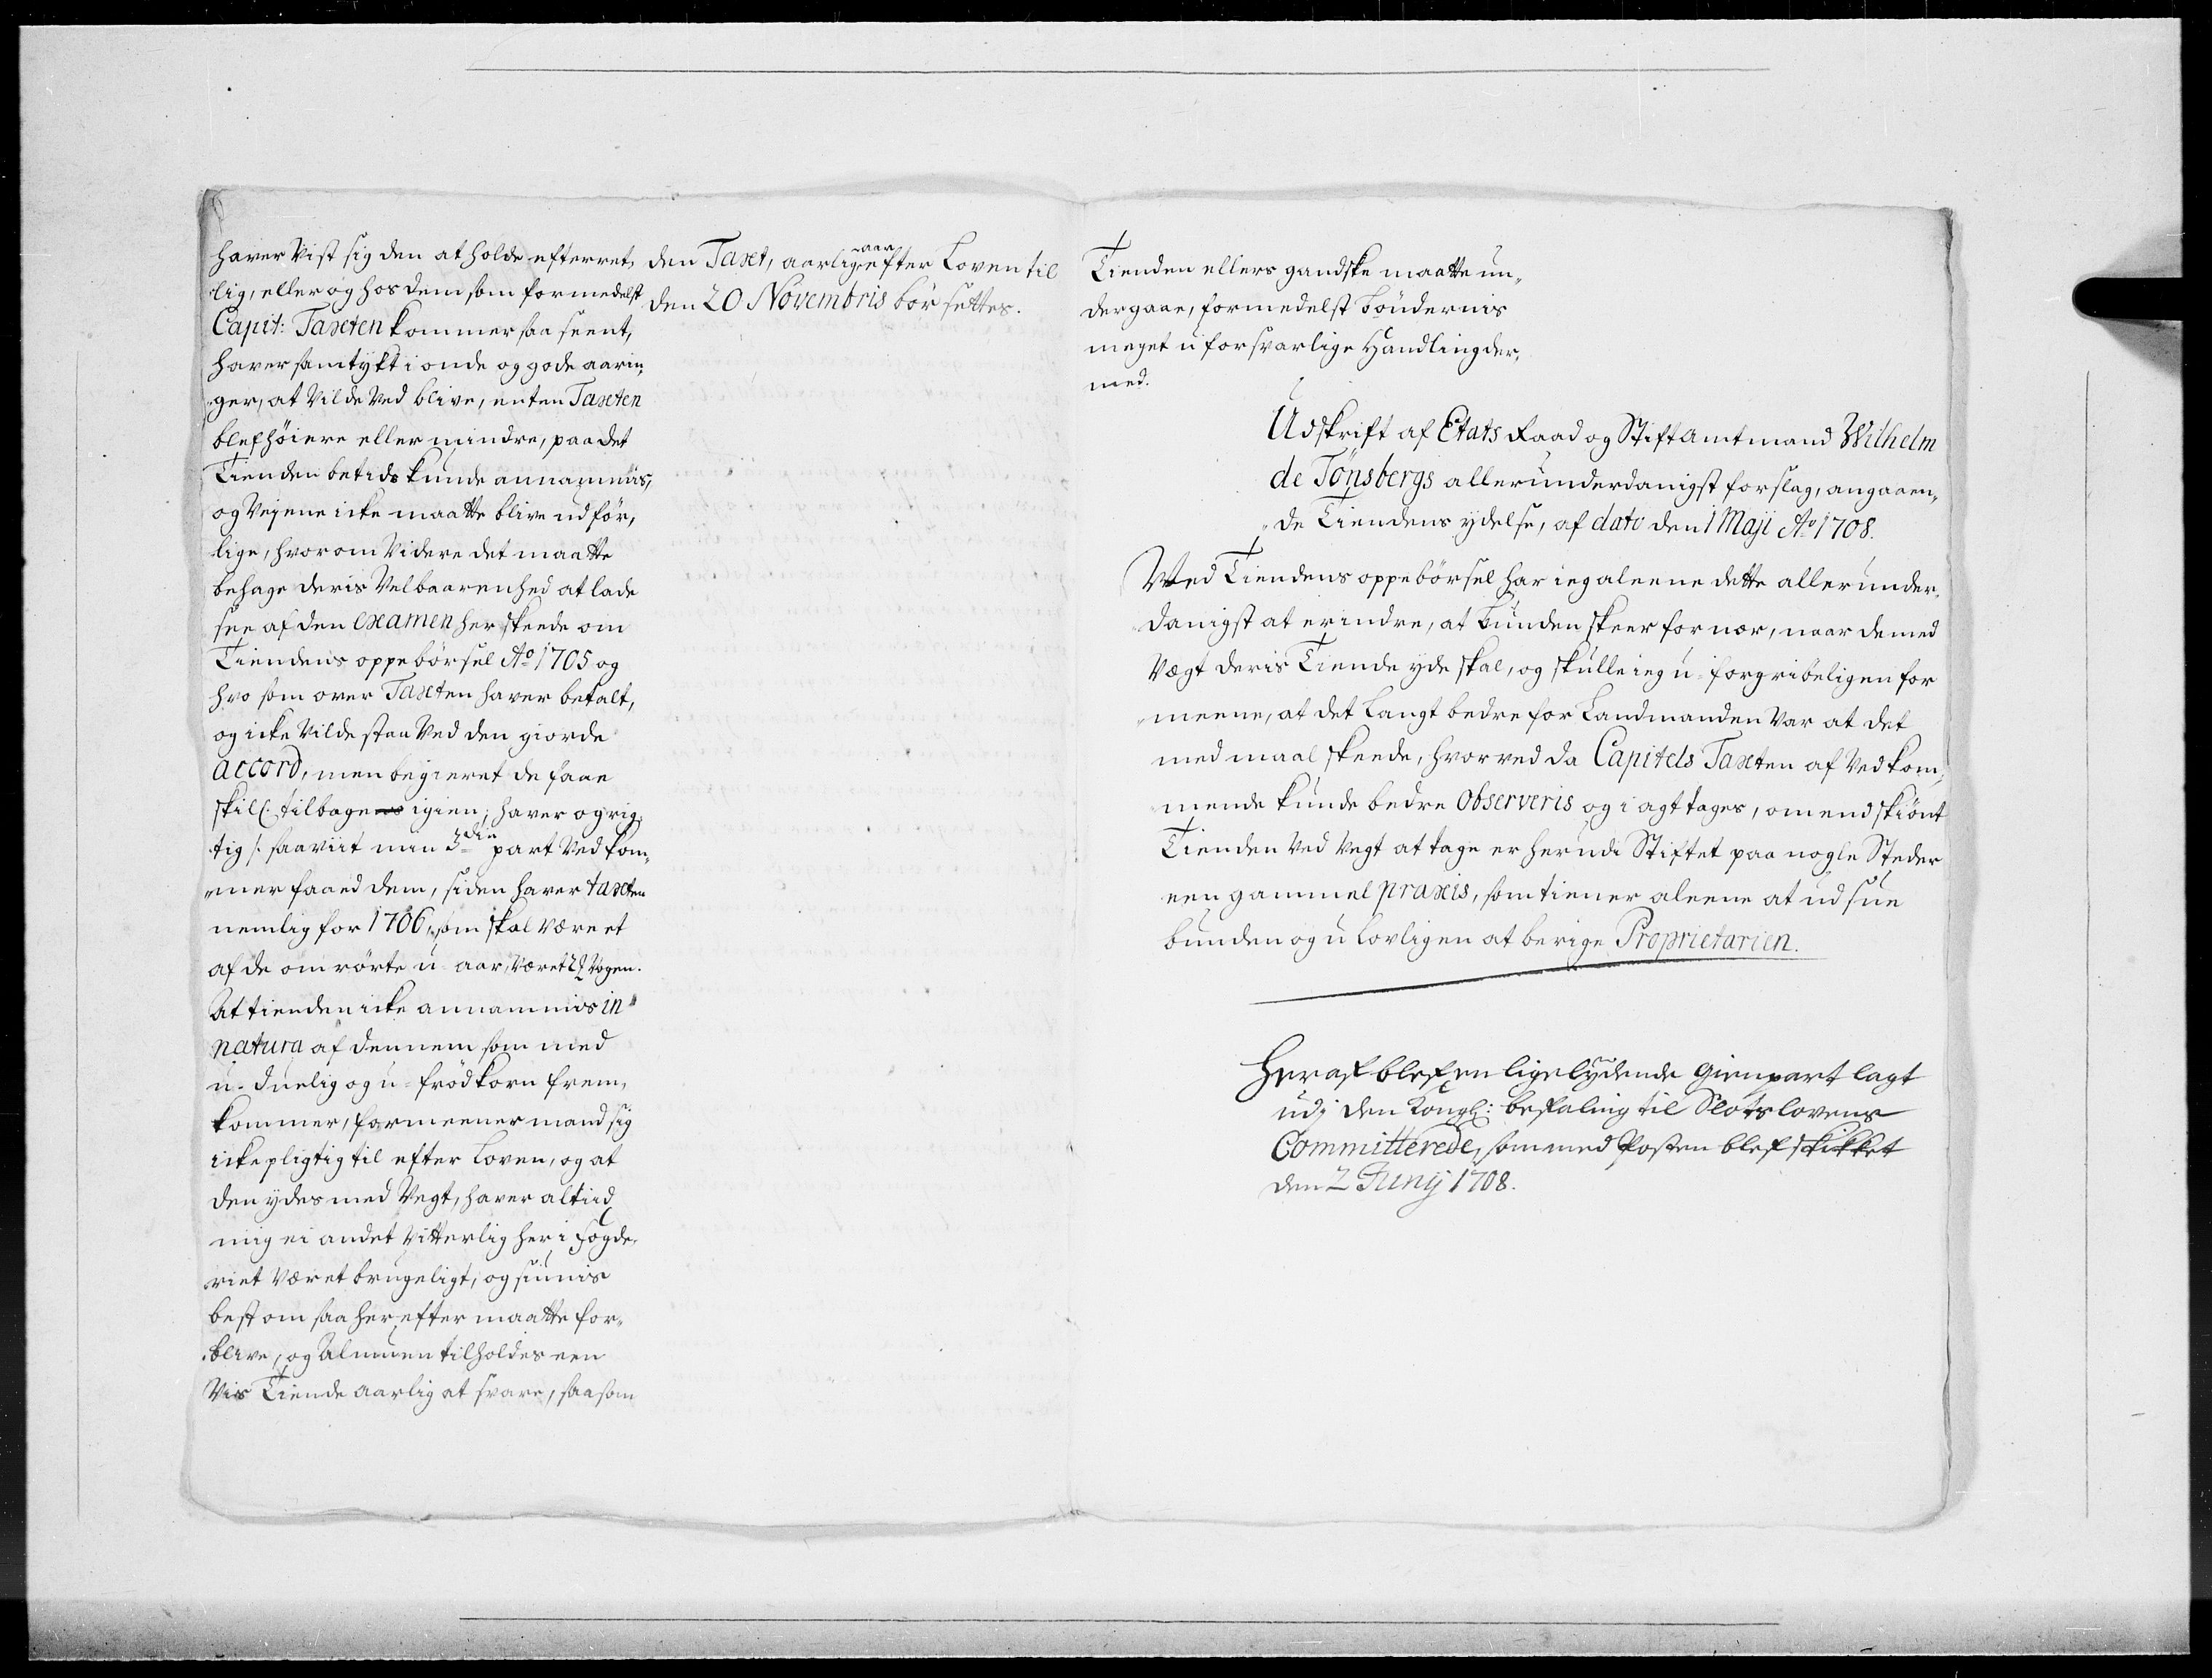 haver vist sig den at holde efterret,
lig, eller og hos dem som formedelst
Capit: Taxten kommer saa seent,
haver samtykt i onde og gode aarin,
ger, at vilde ved blive, enten Taxten
blef höiere eller mindre, paa det
Tienden betids kunde annammis,
og Vejene icke maatte blive udför,
lige, hvorom Videre det maatte
behage deris Velbaarenhed at lade
see af den examen her skeede om
Tiendens oppebörsel Ao 1705 og
hvo som over Taxten haver betalt,
og icke vilde staa ved den giorde
accord, men begieret de faae
skill. tilbage igien, haver og rig,
tig /: saaviit min 3die part ved kom,
mer faaed dem, siden haver taxten
nemlig for 1706, som skal være et
af de om rörte u-aar, været Vogen.
At tienden icke annammis in
natura af dennem som med
u-duelig og u-frödkorn frem,
kommer, formeener mand sig
icke pligtig til efter Loven, og at
den ydes med Vegt, haver altiid
mig ei andet vitterlig her i fogde,
riet været brugeligt, og siunis
best om saa her efter maatte for,
blive, og Almuen tilholdes een
Vis Tiende aarlig at svare, saasom
den Taxt, aarlig efter Loven til
den 20 Novembris bör settes.
Tienden ellers gandske maatte un,
dergaae, formedelst böndernis
meget uforsvarlige Handling der,
med.
Udskrift af Etats Raad og Stiftamtmand Wilhelm
de Tönsbergs allerunderdanigst forslag, angaaen,
de Tiendens ydelse, af dato den 1 Maji Ao 1708.
Wed Tiendens oppebörsel har ieg aleene dette allerunder,
danigst at erindre, at bunden skeer for nær, naar de med
Vægt deris Tiende yde skal, og skulle ieg u-forgribeligen for
meene, at det langt bedre for Landmanden var at det
med maal skeede, hvorved da Capitels Taxten af Vedkom,
mende kunde bedre Observeris og i agt tages, omendskiönt
Tienden ved Vegt at tage er her udi Stiftet paa nogle Steder
een gammel praxis, som tiener aleene at udsue
bunden og ulovligen at berige Proprietarien.
Heraf blef en ligelydende gienpart lagt
udi den Kongl: befaling til Slotslovens
Committerede, som med Posten blef skikket
den 2 Junij 1708.